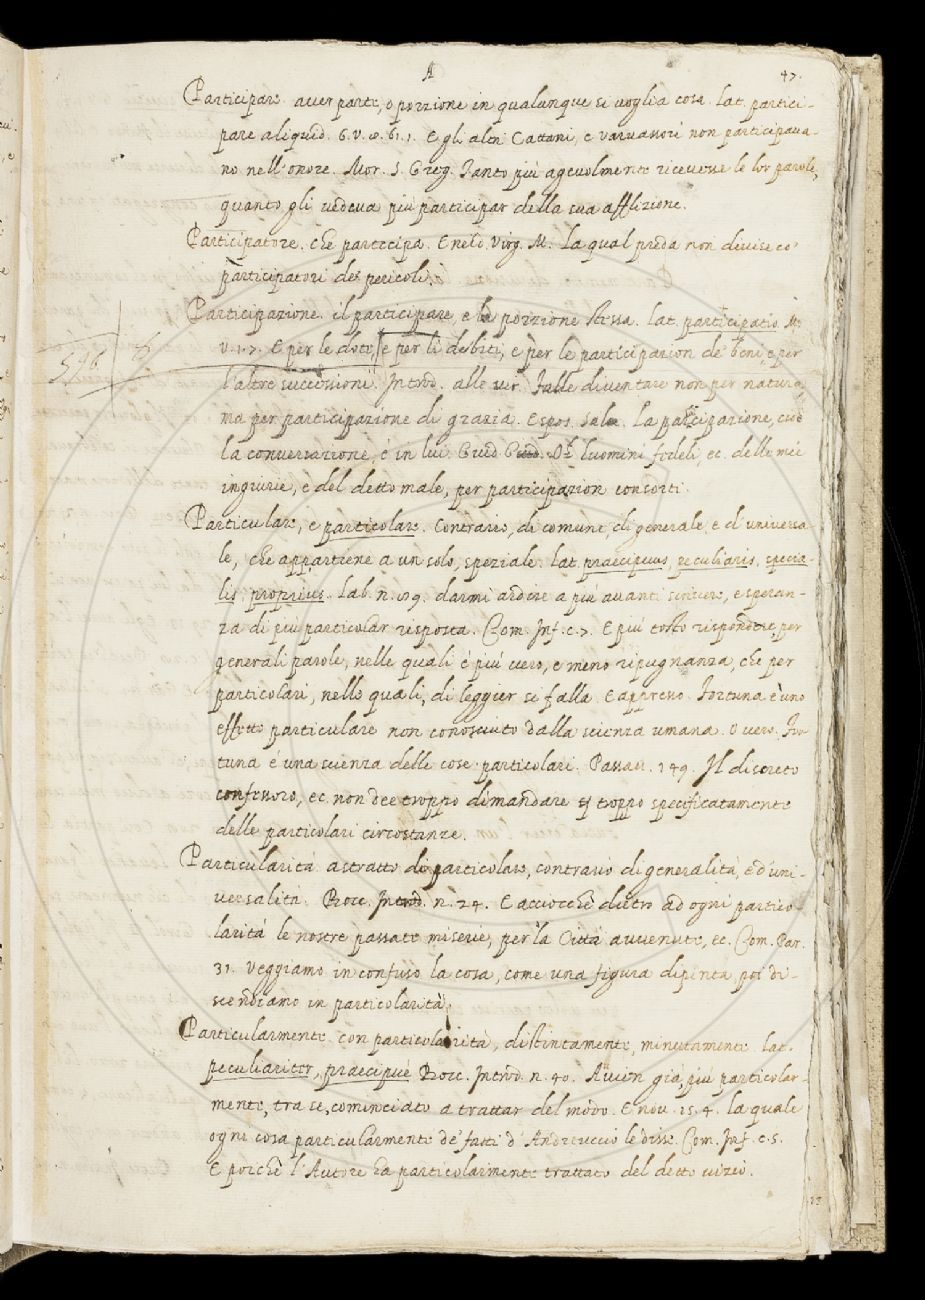 A
47.
Participare. aver parte, o porzione in qualunque si voglia cosa. Lat. partici-
pare aliquid. G.V. 8. 61. 1. E gli altri Cattani, e varvassori non participava-
no nell'onore. Mor. S. Greg. Tanto più agevolmente ricevesse le lor parole,
quanto gli vedeva più participar della sua afflizione.
Participatore. che participa. Eneid. Virg. M. La qual preda non divise co'
participatori de' pericoli.
Participazione. il participare, e la porzione stessa. Lat. participatio. M.
V. 1. 7. E per le dote, e per li debiti, e per le participazion de' beni, e per
l'altre successioni. Introd. alle vir. Falle diventare non per natura,
ma per participazione di grazia. Espos. Salm. La participazione, cioè
la conversazione, è in lui. Guid. G. Oh luomini fedeli, ec. delle mie
ingiurie, e del detto male, per participazion consorti.
Particulare, e particolare. Contrario, di comune, di generale e d'universa-
le, che appartiene a un solo, speziale. Lat. praecipuus, peculiaris, specia-
lis proprius. Lab. n. 89. darmi ardire a più avanti scrivere, e speran-
za di più particular risposta. Com. Inf. c. 7. E più tosto risponderre per
generali parole, nelle quali è più vero, e meno ripugnanza, che per
particolari, nelle quali, di leggier si falla. E appresso. Fortuna è uno
effetto particulare non conosciuto dalla scienza umana. O vero. For-
tuna è una scienza delle cose particolari. Passav. 149. Il discreto
confessoro, ec. non dee troppo dimandare troppo specificatamente
delle particolari circostanze.
Particularità astratto di particolare, contrario di generalità, e d'uni-
versalità. Bocc. Introd. n. 24. E acciocchè dietro ad ogni partico-
larità le nostre passate miserie, per la Città avvenute, ec. Com. Par.
31. Veggiamo in confuso la cosa, come una figura dipinta, poi di-
scendiamo in particolarità.
Particularmente. con particularità, distintamente, minutamente. Lat.
peculiariter, praecipuè Bocc. Introd. n. 40. Avien già, più particolar-
mente, tra se, cominciato a trattar del modo. E nov. 15. 4. la quale
ogni cosa particularmente de' fatti d'Andreuccio le disse. Com. Inf. c. 5.
E porchè l'Autore ha particolarmente trattato del detto vizio.